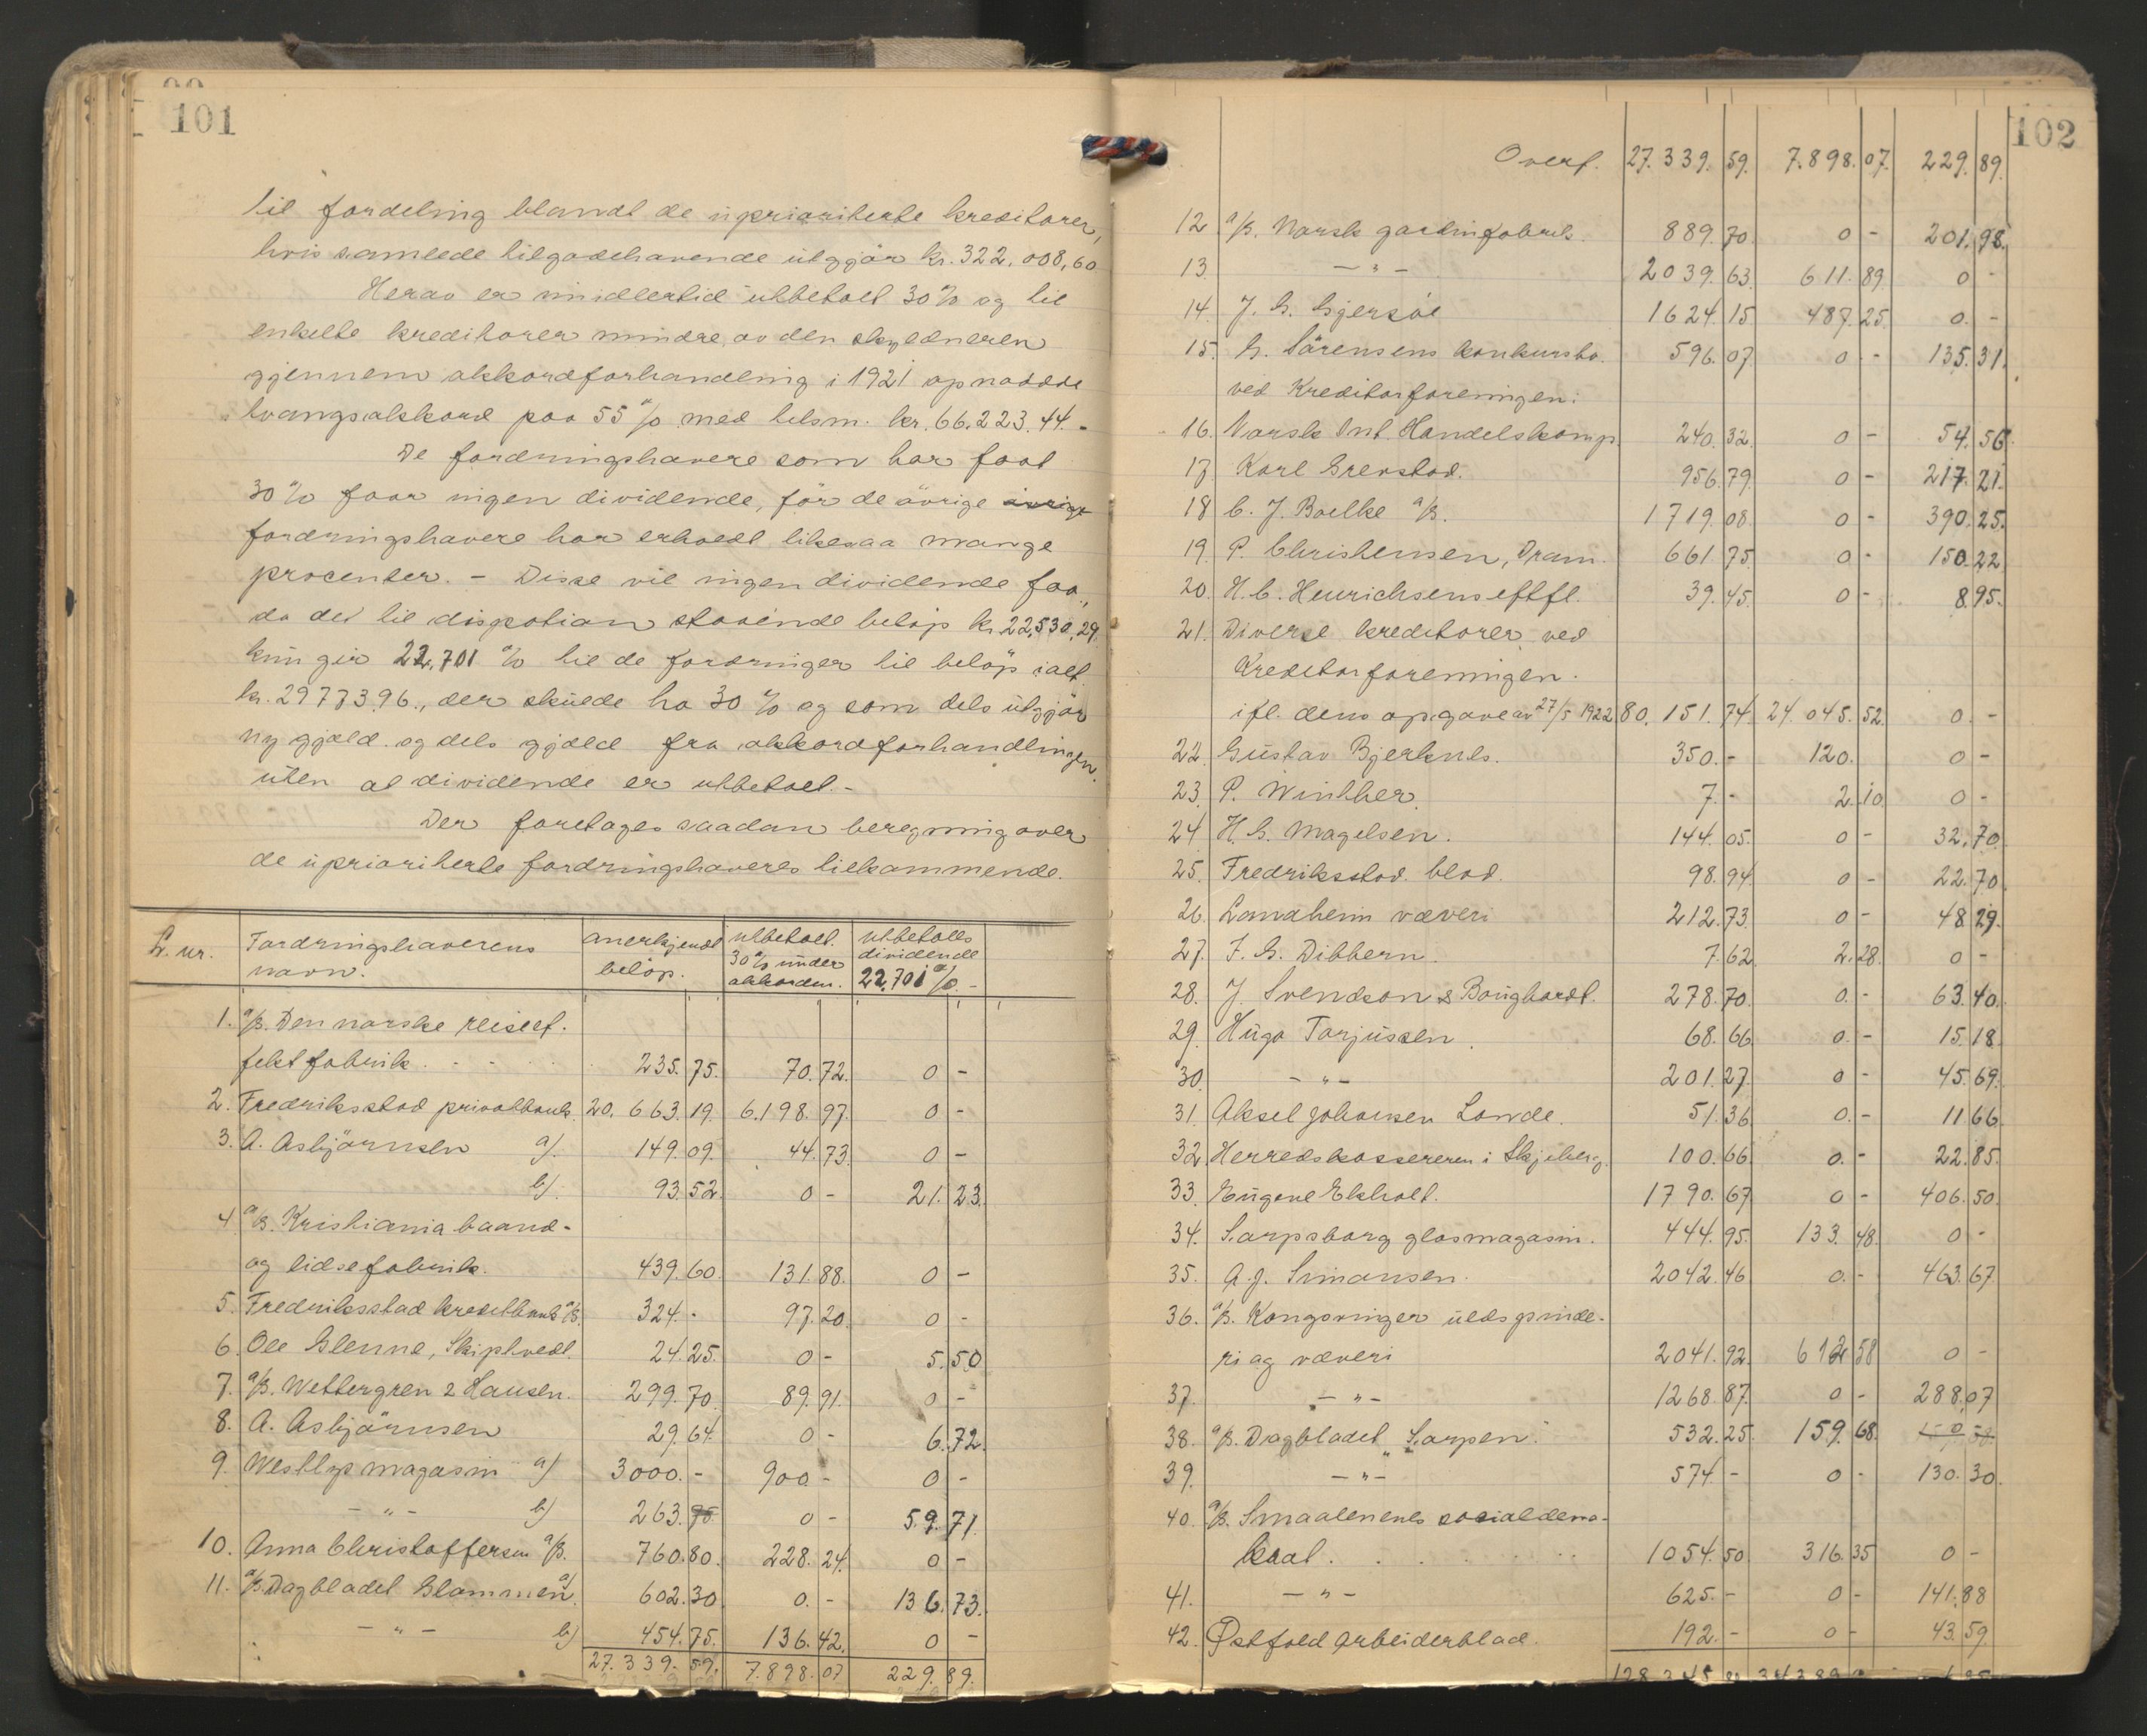 101
til fordeling blandt de upriariterte kreditorer,
hvis samlede tilgodehavende utgjør kr. 322.008,60
Herav er imidlertid utbetalt 30% og til
enkelte kreditorer mindre, av den skyldneren
gjennem akkordforhandling i 1921 opnaadde
tvangsakkord paa 55% med tilsm. kr. 66.223.44.-
De fordringshavere som har faat
30% faar ingen dividende, før de øvrige øvrige
fordringshavere har erholdt likesaa mange
procenter. - Disse vil ingen dividende faa,
da det til disposition staaende beløp kr. 22,530,29
kun gir 22,701 % til de fordringer til beløp ialt
kr. 29773.96., der skulde ha 30% og som dels utgjør
ny gjæld og dels gjæld fra akkordforhandlingen
uten at dividende er utbetalt.-
Der foretages saadan beregning over
de upriariterte fordringshaveres tilkommende.
L. nr. Fordringshaverens navn. anerkjendt beløp. utbetalt 30% under akkorden. utbetales dividende 22,701 %.-
1. a/s. Den norske reiseef-
fekt fabrik . - - 235.75. 70.72. 0 -
2. Fredriksstad privatbank 20.663.19. 6.198.97. 0 -
3. A. Asbjørnsen a). 149.09. 44.73. 0 -
b). 93.52. 0 - 21.23.
4 a/s. Kristiania baand-
og lidsefabrik. 439.60. 131.88. 0 -
5. Fredriksstad kreditbank a/s. 324.- 97.20. 0 -
6. Ole Glenne, Skiptvedt. 24.25. 0 - 5.50
7. a/s. Wettergren & Hansen. 299.70. 89.91. 0 -
8. A. Asbjørnsen 29.64. 0 - 6.72.
9. Westbys magasin a) 3000.- 900.- 0 -
- " - b) 263.75. 0 - 59.71.
10. Anna Christoffersen a/s. 760.80. 228.24. 0 -
11. a/s. Dagbladet Glommen a) 602.30 0.- 136.73.
- " - b) 454.75. 136.42. 0 -
27.339.59. 7.898.07 229.89.
102
Overf. 27.339.59. 7.898.07. 229.89.
12 a/s. Norsk gardinfabrik. 889.70. 0 - 201.98.
13. - " - 2039.63. 611.89. 0 -
14. J. G. Gjersøe 1624.15 487.25. 0.-
15. G. Sørensens konkursbo. 596.07. 0 - 135.31.
ved Kreditorforeningen:
16. Norsk Int. Handelskomp. 240.32. 0 - 54.56.
17. Karl Grevstad. 956.79. 0 - 217.21.
18 C. J. Boelke a/s. 1719.08. 0 - 390.25.
19. P. Christensen, Dram. 661.75. 0 - 150.22
20. H. C. Henrichsens eftfl. 39.45. 0 - 8.95.
21. Diverse kreditorer ved
Kreditorforeningen.
ifl. dens opgave av 27/5 1922 80.151.74. 24.045.52. 0.-
22. Gustav Bjerknes. 350.- 120. 0 -
23. P. Winther. 7.- 2.10 0 -
24. H. G. Magelsen. 144.05. 0 - 32.70.
25. Fredriksstad blad. 98.94. 0 - 22.70.
26. Landheim væveri 212.73. 0 - 48.29.
27. F. G. Dibbern. 7.62. 2.28. 0 -
28. J. Svendson & Boughardt. 278.70. 0.- 63.40.
29. Hugo Torjussen. 68.66 0.- 15.18.
30. - " - 201.27. 0 - 45.69.
31. Aksel Johansen Lande. 51.36 0.- 11.66.
32. Herredskassereren i Skjeberg. 100.66. 0.- 22.85.
33. Eugene Ekholt. 1790.67 0 - 406.50.
34. Sarpsborg glasmagasin. 444.95. 133.48. 0 -
35. A. J. Simonsen. 2042.46 0.- 463.67.
36. a/s. Kongsvinger uldspinde-
ri og væveri 2041.92. 612.58 0 -
37. - " - 1268.87. 0 - 288.07
38. a/s. Dagbladet "Sarpen". 532.25. 159.68. 0
39. - " - 574 - 0 - 130.30.
40. a/s. Smaalenenes socialdemo-
krat. 1054.50 316.35 0 -
41. - " - 625.- 0 - 141.88
42. Østfold Arbeiderblad. 192.- 0 - 43.59